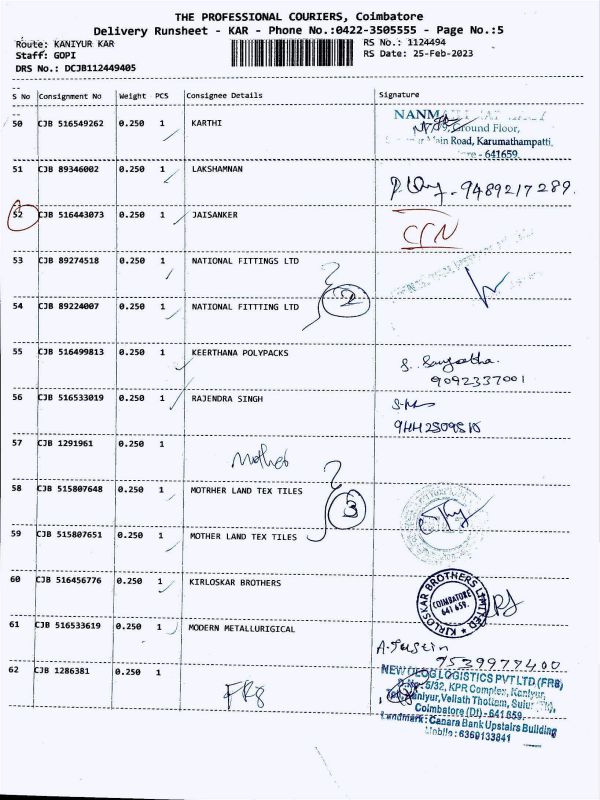 THE PROFESSIONAL COURIERS, Coimbatore
Delivery Runsheet - KAR - Phone No.:0422-3505555 - Page No.:5
Route: KANIYUR KAR RS No.: 1124494
Staff: GOPI RS Date: 25-Feb-2023
DRS No.: DCJB112449405
S No Consignment No Weight PCS Consignee Details Signature
50 CJB 516549262 0.250 1 KARTHI
Ground Floor,
Main Road, Karumathampatti,
- 641659.
51 CJB 89346002 0.250 1 LAKSHAMNAN
9489217289.
52 CJB 516443073 0.250 1 JAISANKER
53 CJB 89274518 0.250 1 NATIONAL FITTINGS LTD
2
54 CJB 89224007 0.250 1 NATIONAL FITTTING LTD
55 CJB 516499813 0.250 1 KEERTHANA POLYPACKS
S. Sangeetha.
9092337001
56 CJB 516533019 0.250 1 RAJENDRA SINGH
57 CJB 1291961 0.250 1
Mother
58 CJB 515807648 0.250 1 MOTRHER LAND TEX TILES
3
59 CJB 515807651 0.250 1 MOTHER LAND TEX TILES
60 CJB 516456776 0.250 1 KIRLOSKAR BROTHERS
KIRLOSKAR BROTHERS LIMITED
COIMBATORE
641 659.
61 CJB 516533619 0.250 1 MODERN METALLURIGICAL
A. Justin
9539977400
62 CJB 1286381 0.250 1
FR8
NEW DLOG LOGISTICS PVT LTD (FR8)
5/32, KPR Complex, Kaniyur,
Kaniyur, Vellath Thottam,
Coimbatore (Dt) - 641 659.
Landmark : Canara Bank Upstairs Building
Mobile : 6369133841